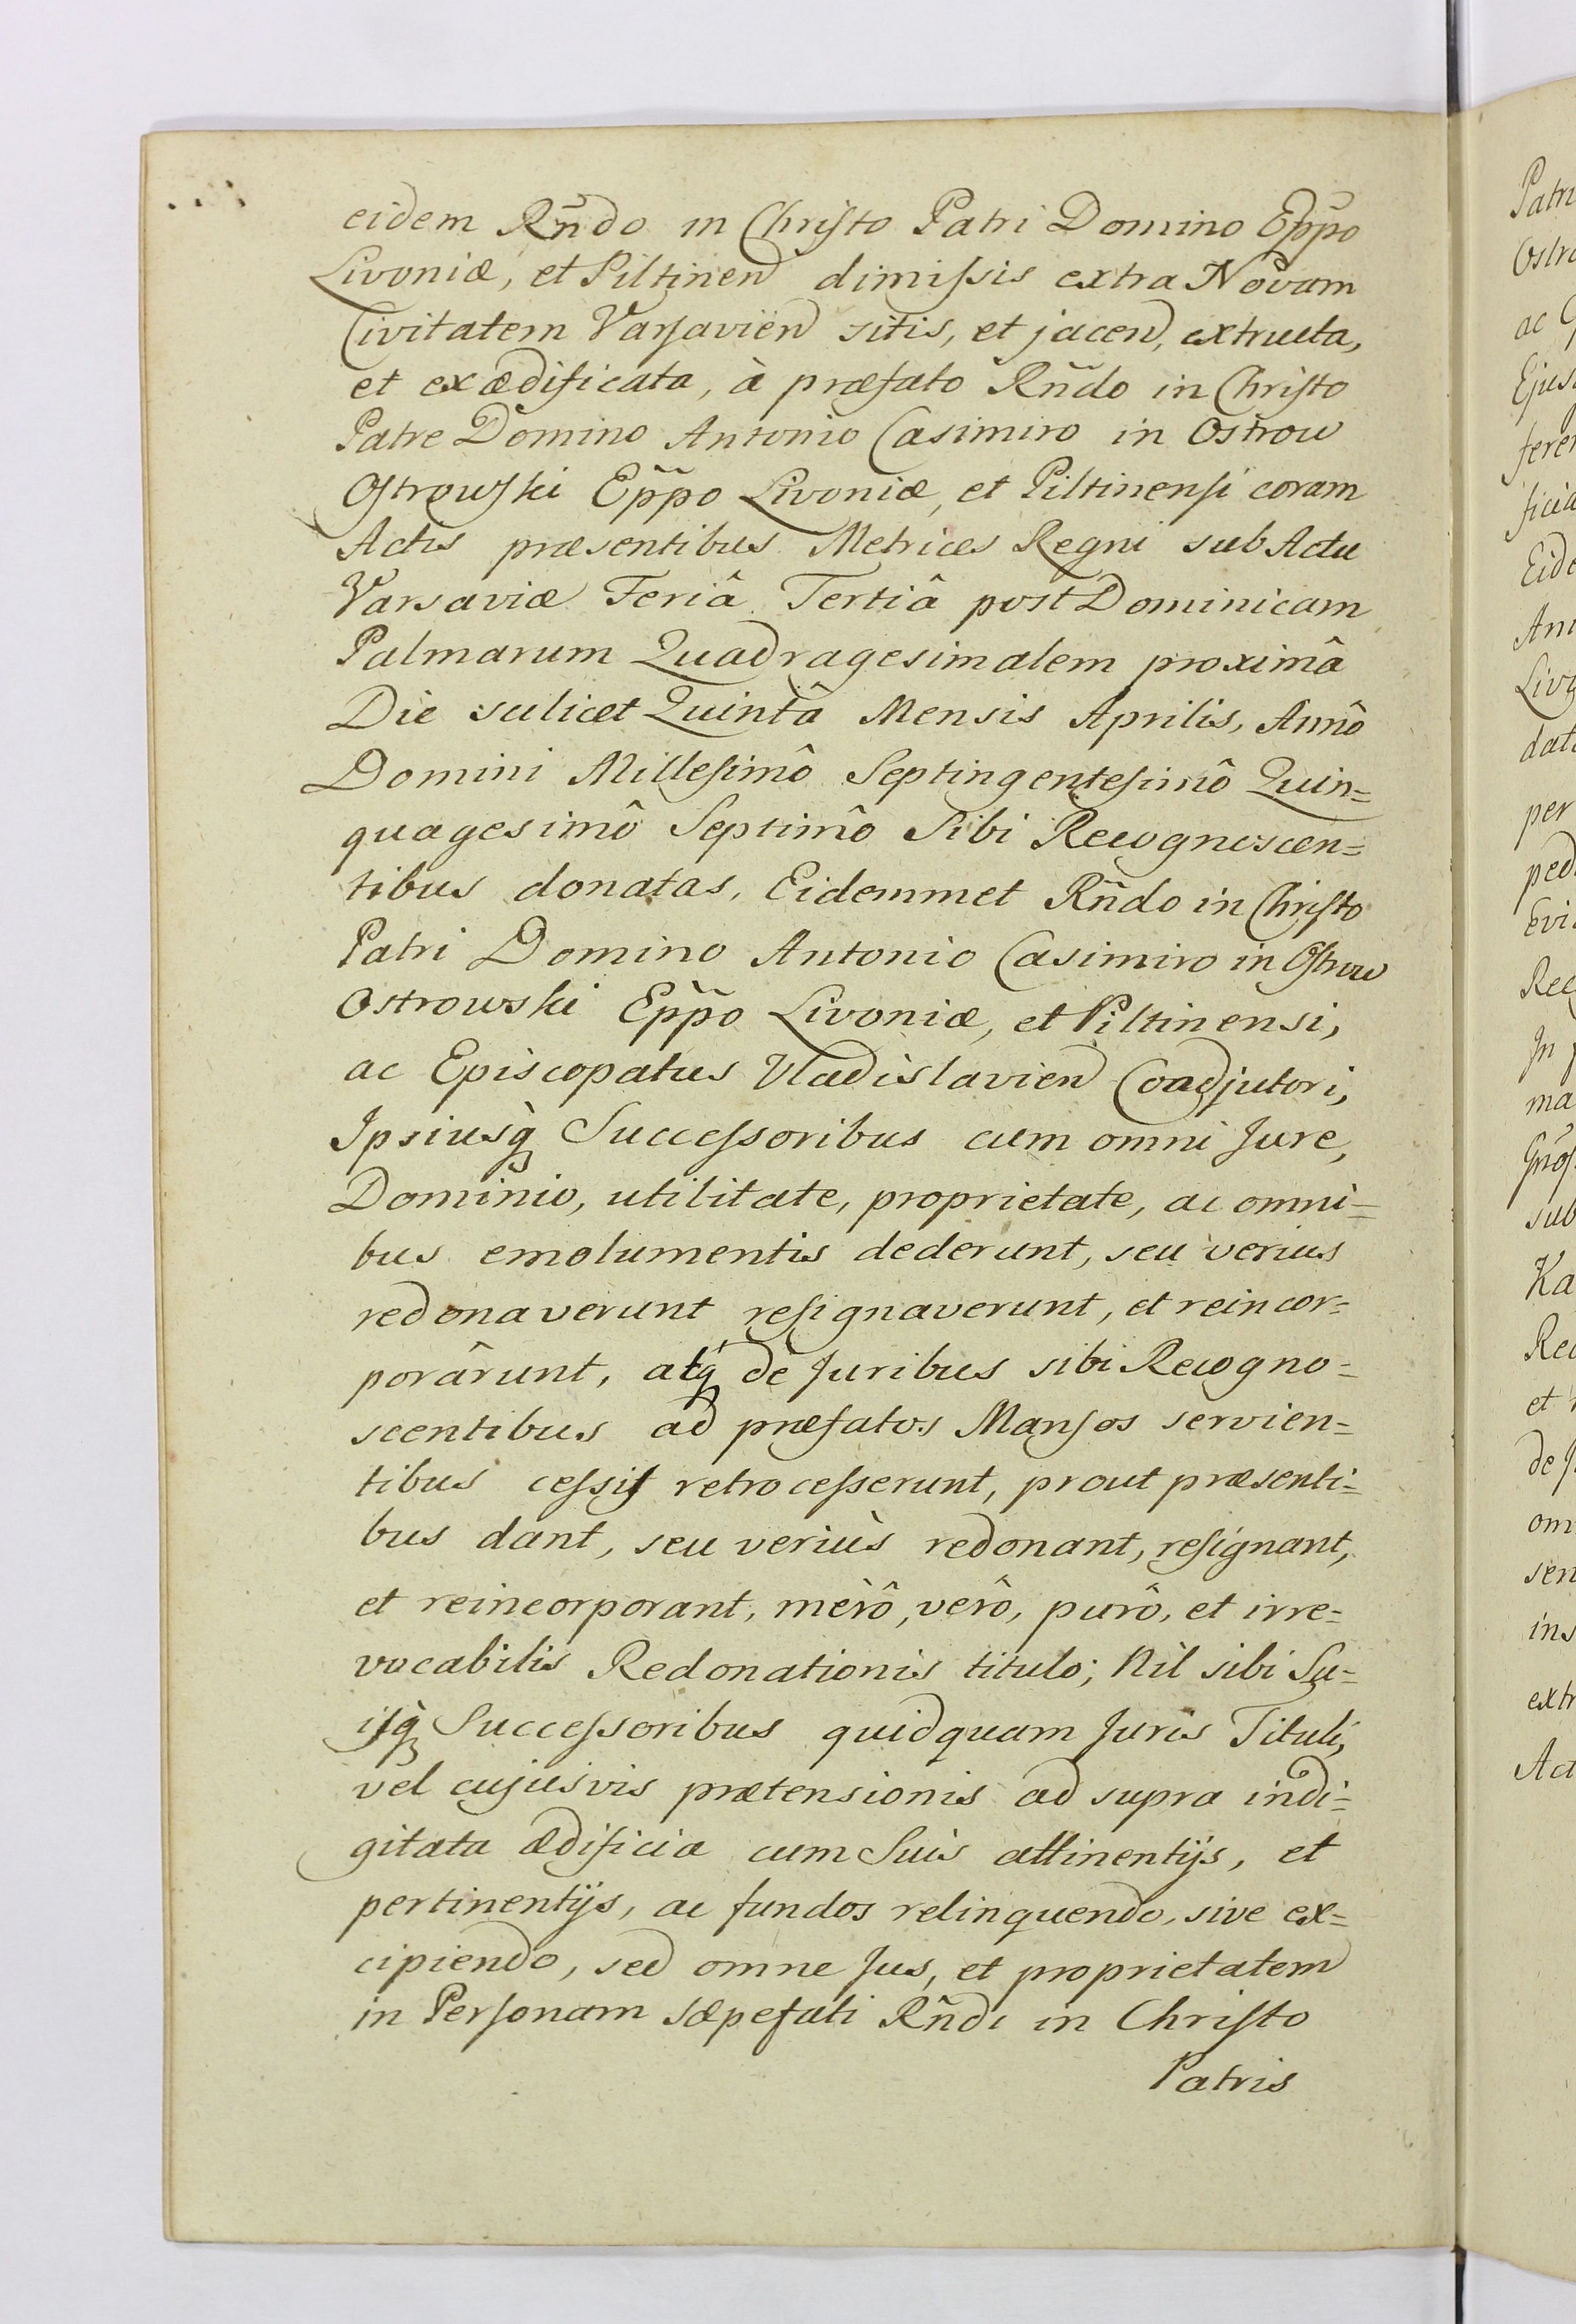 eidem Rñdo in Christo Patri Domino Eppo
Livoniæ, et Piltinen dimissis extra Novam
Civitatem Varsavien sitis, et jacen, extructa,
et exædificata, à præfato Rñdo in Christo
Patre Domino Antonio Casimiro in Ostrow
Ostrowski Eppo Livoniæ, et Piltinensi coram
Actis præsentibus Metrices Regni sub Actu
Varsaviæ Feriâ Tertiâ post Dominicam
Palmarum Quadragesimalem proximâ
Die scilicet Quintâ Mensis Aprilis, Annô
Domini Millesimô Septingentesimô Quin=
quagesimô Septimô Sibi Recognoscen=
tibus donatas, Eidemmet Rñdo in Christo
Patri Domino Antonio Casimiro in Ostrow
Ostrowski Eppo Livoniæ, et Piltinensi,
ac Episcopatus Vladislavien Coadjutori,
Ipsiusq̀ Successoribus cum omni Jure,
Dominio, utilitate, proprietate, ac omni=
bus emolumentis dederunt, seu verius
redonaverunt resignaverunt, et reincor=
porârunt, atq́ de Juribus sibi Recogno=
scentibus ad præfatos Mansos servien=
tibus cessis retrocesserunt, prout præsenti=
bus dant, seu veriùs redonant, resignant,
et reincorporant, mèrô, verô, purô, et irre=
vocabilis Redonationis titulo; Nil sibi Su=
isq̀ Successoribus quidquam Juris Tituli,
vel cujusvis prætensionis ad supra indi=
gitata ædificia cum Suis attinentijs, et
pertinentijs, ac fundos relinquendo, sive ex=
cipiendo, sed omne Jus, et proprietatem
in Personam sæpefati Rñdi in Christo
Patris
Patri
ac
per
Rec
In
ma
sub
Ka
et
de
om
sen
ins
extr
Act